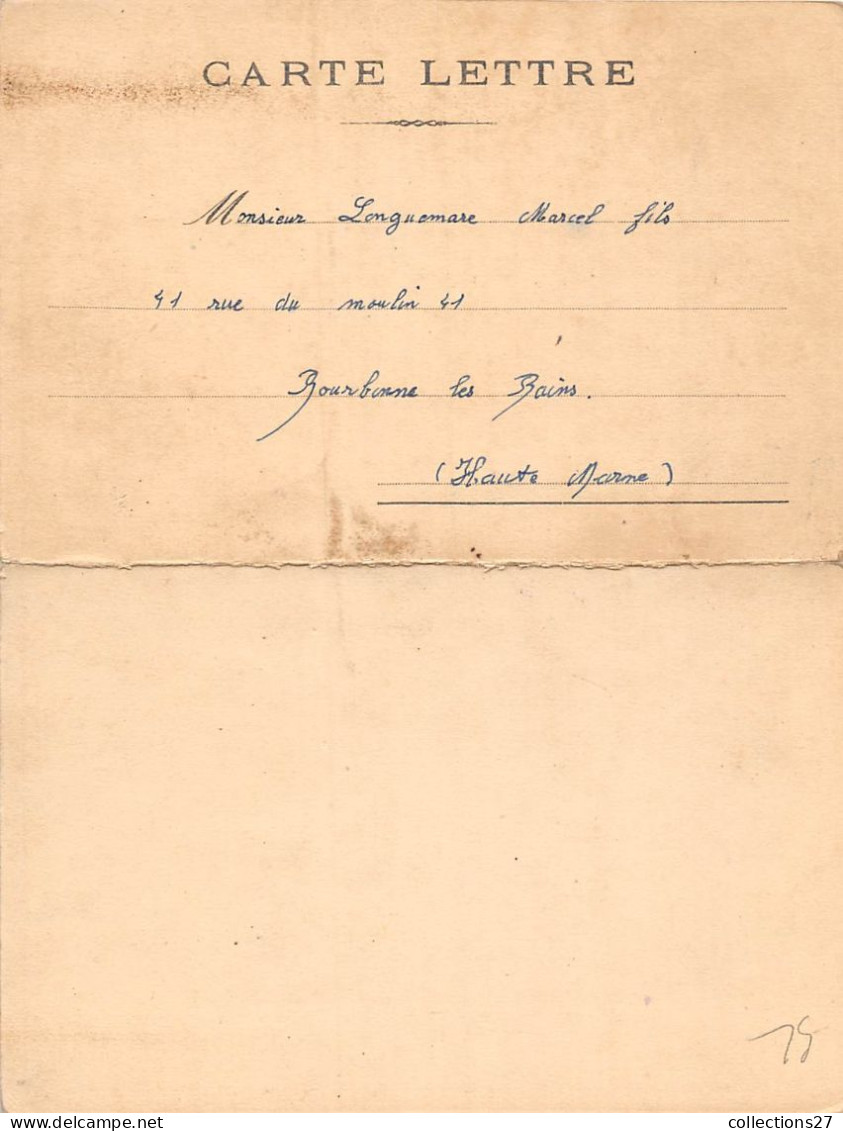 CARTE LETTRE
Monsieur Longuemare Marcel fils
41 rue du moulin 41
Bourbonne les Bains.
(Haute Marne)
15
collections27